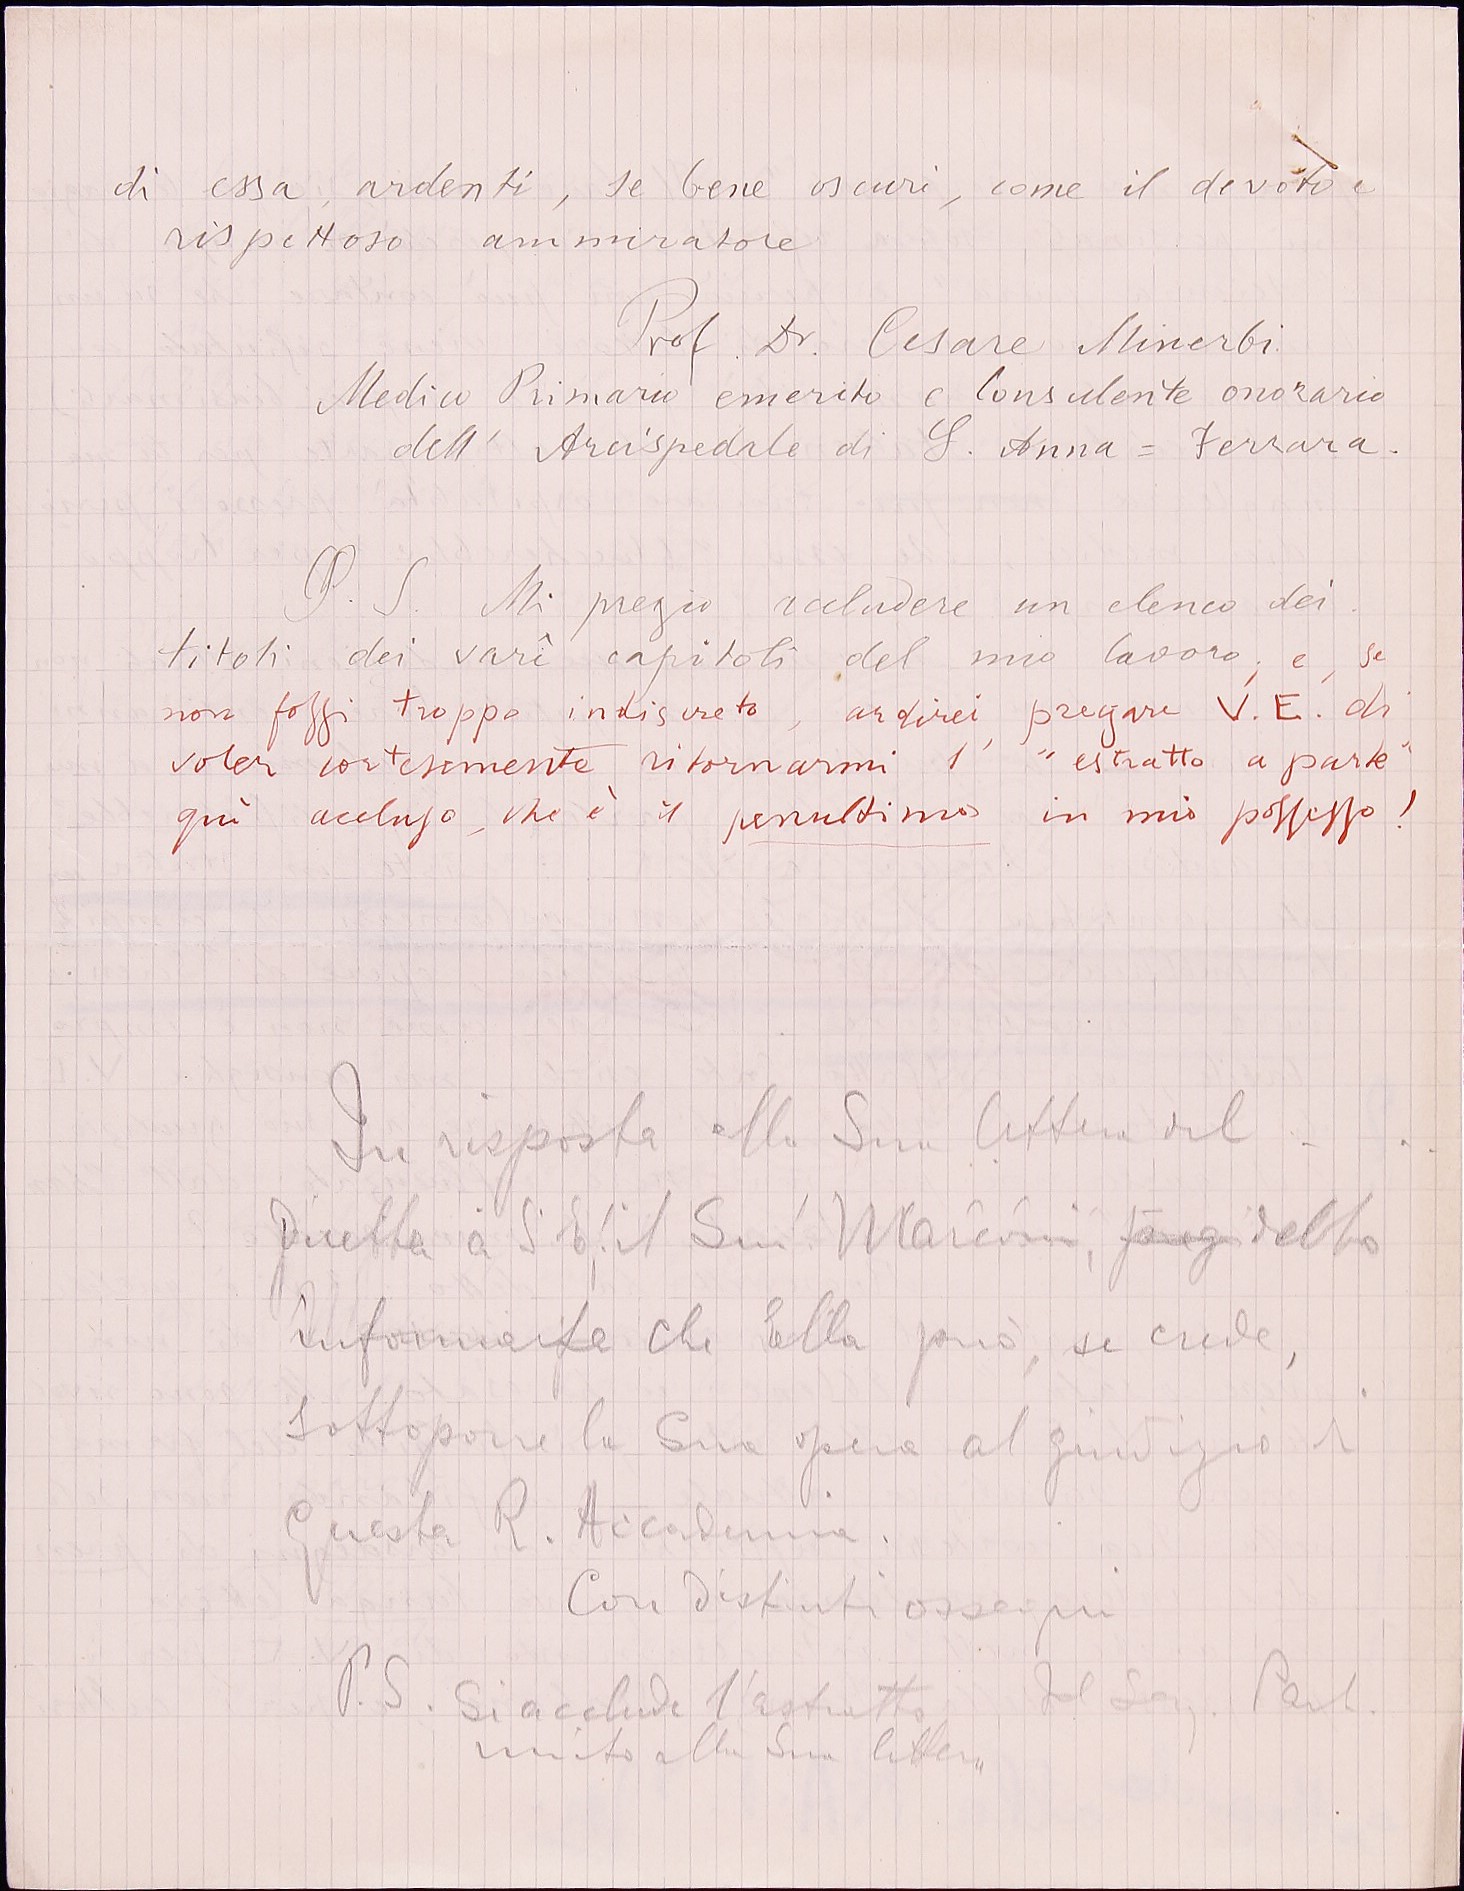 di essa, ardenti, se bene oscuri, come il devoto e
rispettoso ammiratore
Prof. Dr. Cesare Minerbi.
Medico Primario emerito e Consulente onorario
dell' Arcispedale di S. Anna = Ferrara.
P. S. Mi pregio accludere un elenco dei
titoli dei varî capitoli del mio lavoro; e, se
non fossi troppo indiscreto, ardirei pregare V. E. di
voler cortesemente ritornarmi l' "estratto a parte"
quì accluso, che è il penultimo in mio possesso!
In risposta alla Sua lettera del - . .
diretta a S. E. il Sen. Marconi, preg debbo
informarLa che Ella può, se crede,
sottoporre la Sua opera al giudizio di
Questa R. Accademia.
Con distinti ossequi
P.S. Si acclude l'estratto Il Seg. Part.
unito alla Sua lettera